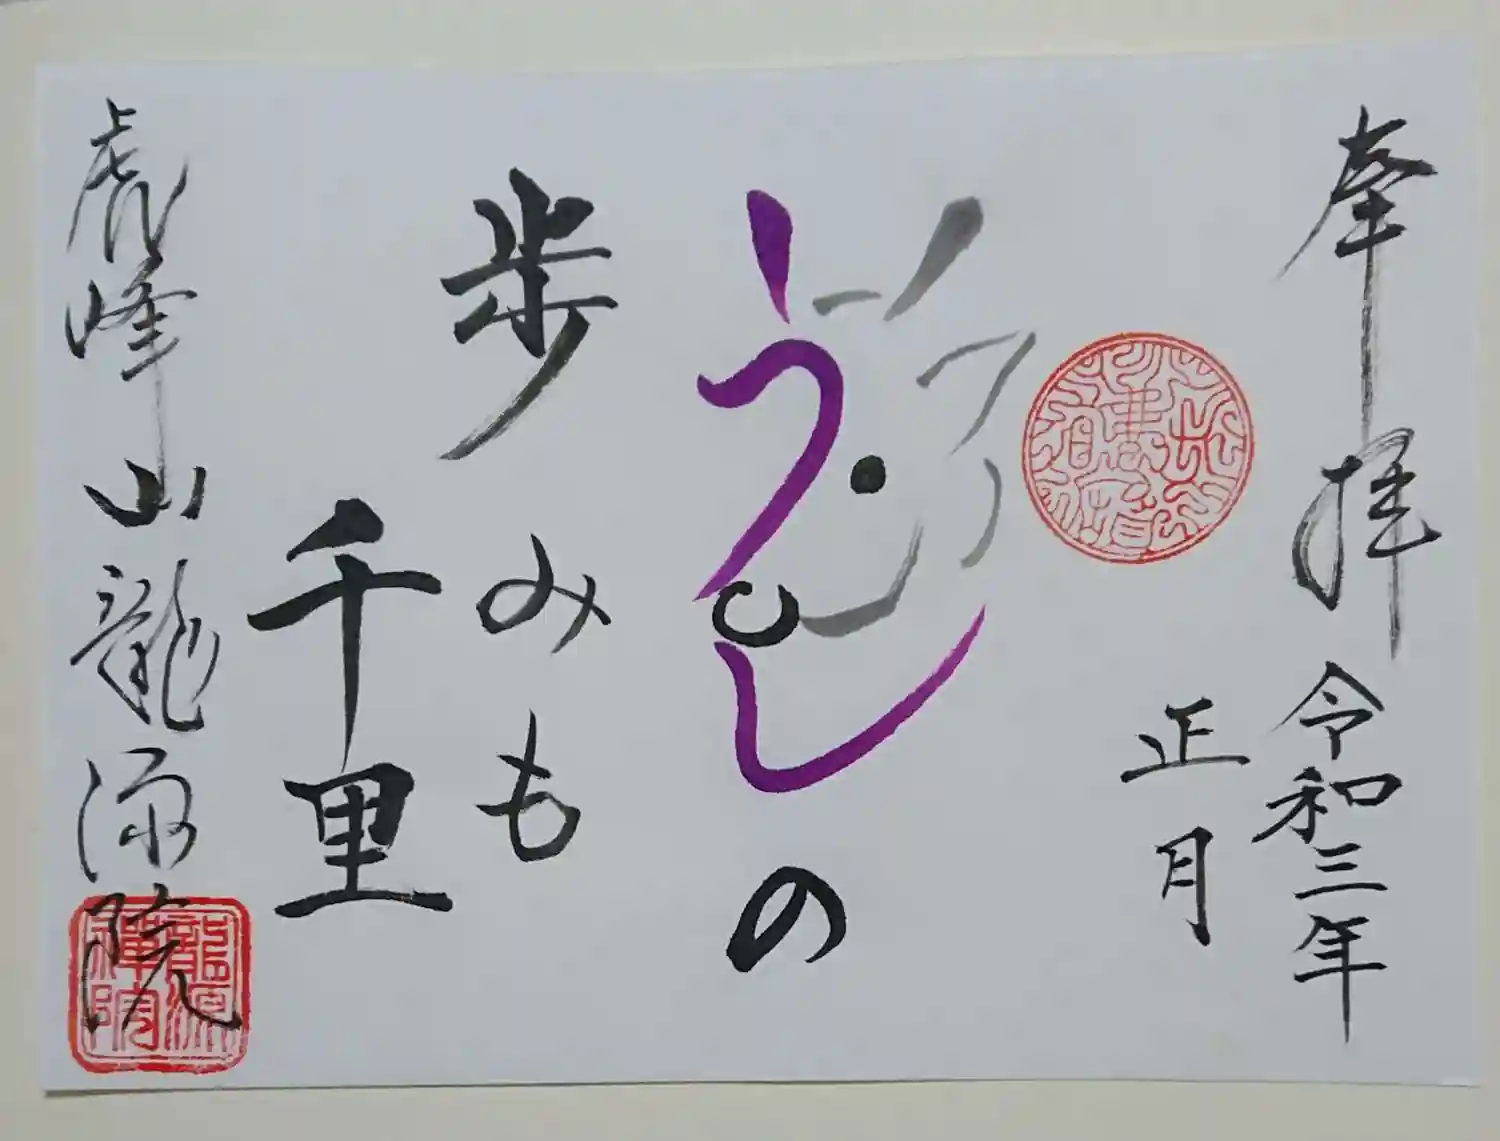 奉拝
令和三年
正月
うしの
歩みも
千里
虎峰山龍源院
龍源禅院